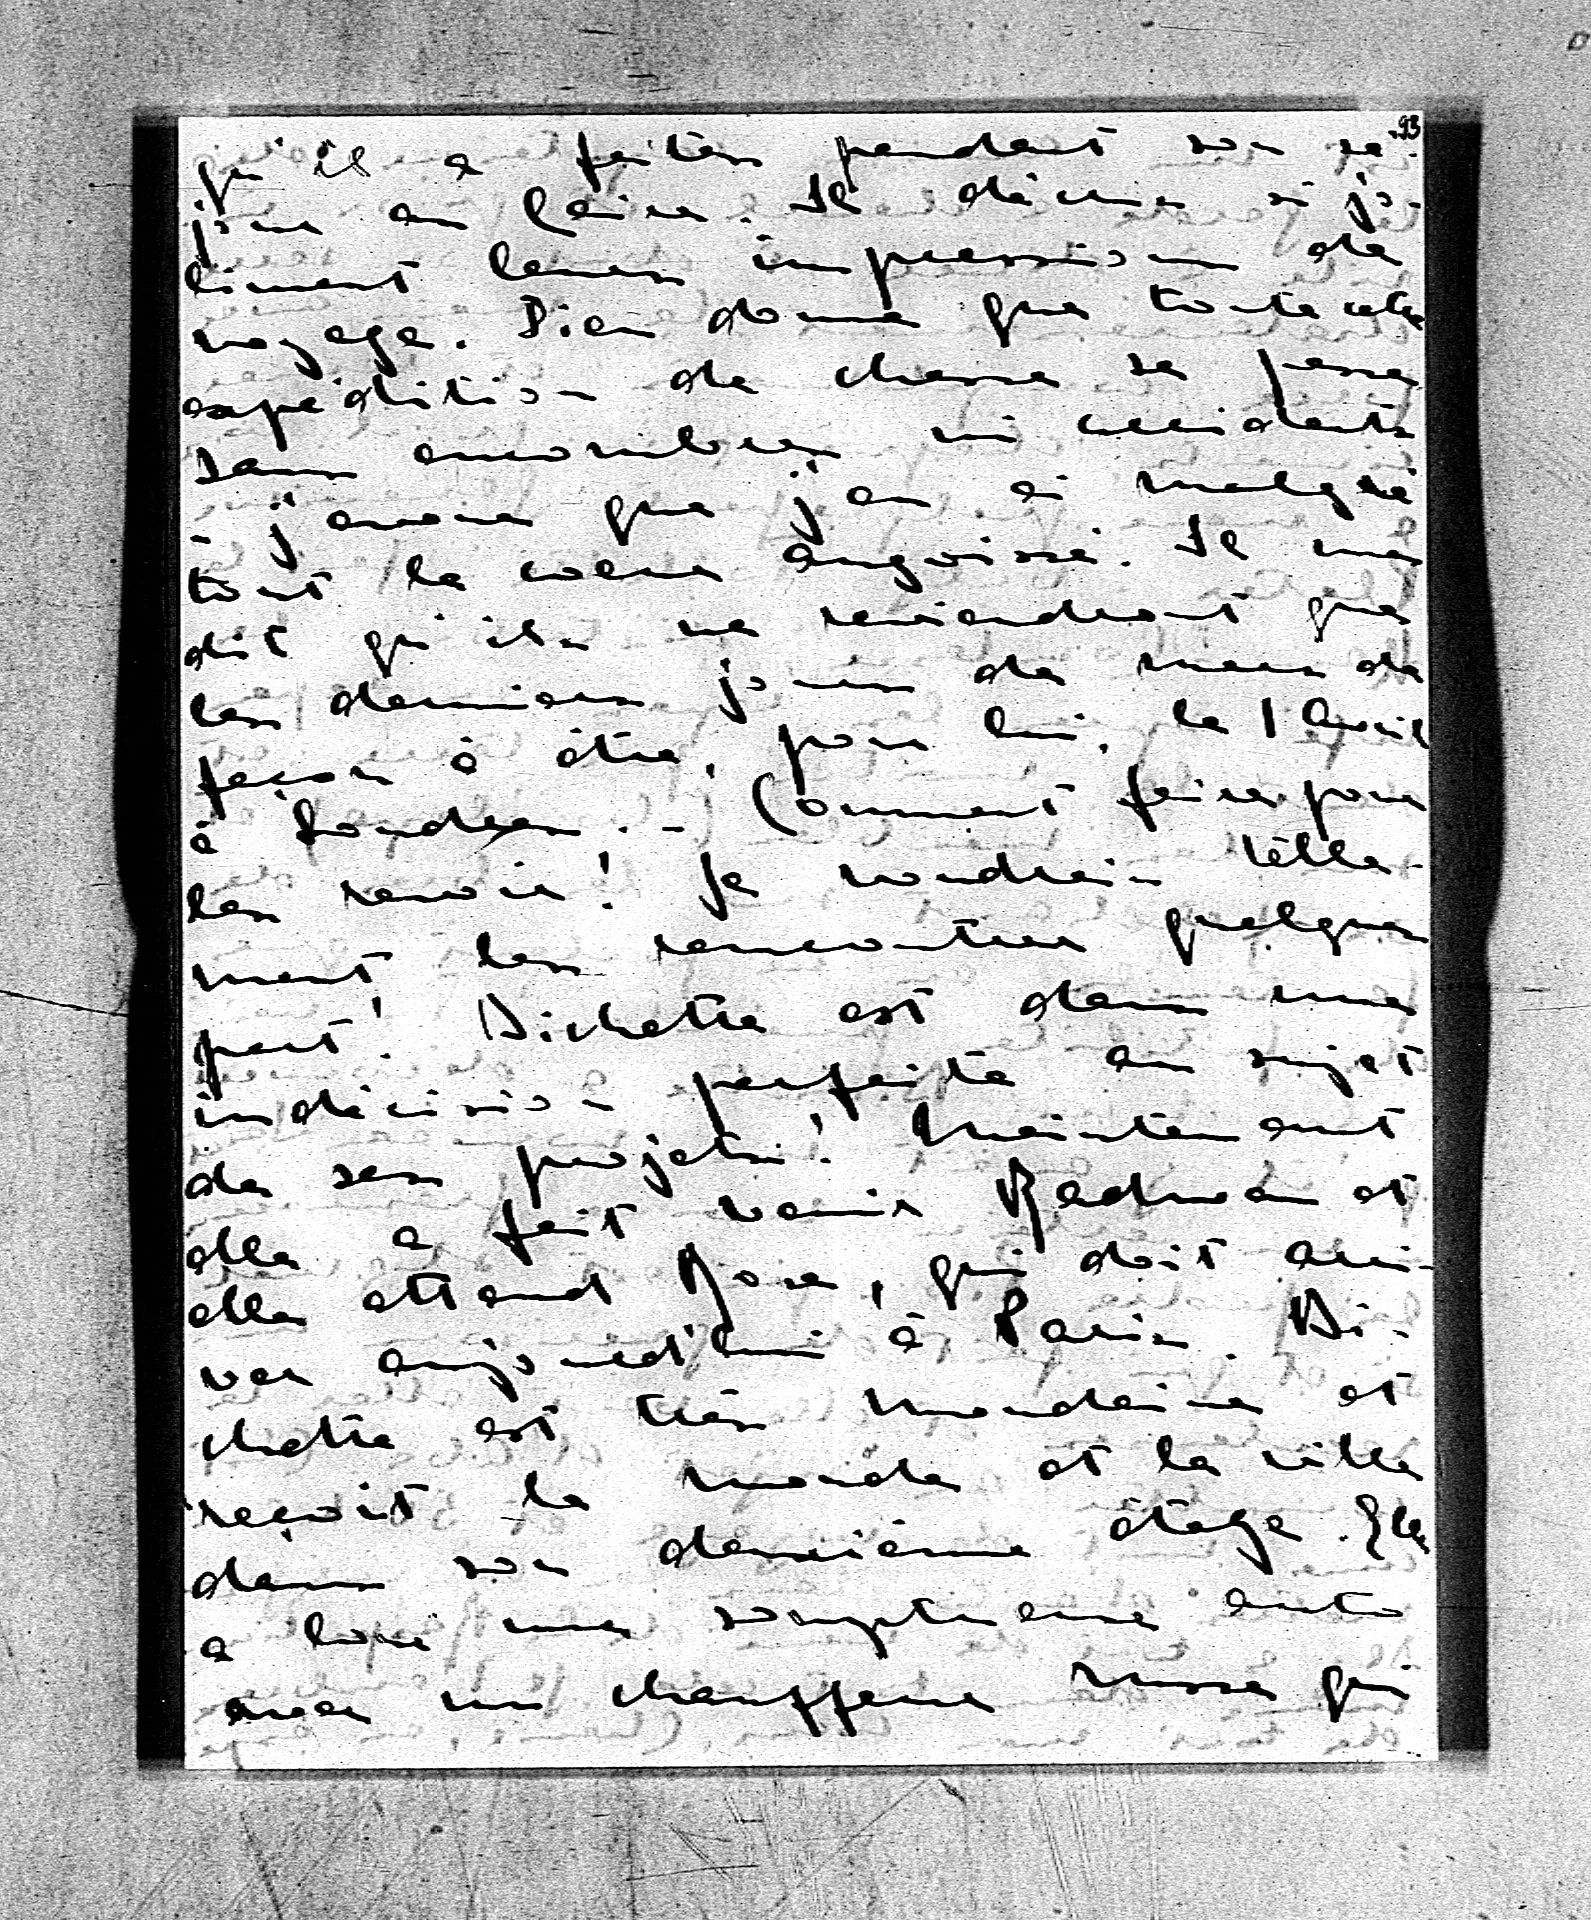 93
qu'il a faites pendant son sé-
jour au Caire. Il décrit si jo-
liment leurs impressions de
voyage. Dieu donne que toute cette
expédition de chasse se passe
sans encombres ni accidents
- j'avoue que j'en ai malgré
tout le coeur angoissé. Il me
dit qu'ils ne reviendront que
les derniers jours de mars de
façon à être, pour lui, le 1 Avril
à Londres .. - Comment faire pour
les revoir! Je voudrais telle-
ment les rencontrer quelque
part! Bichette est dans une
indécision parfaite au sujet
de ses projets! Maintenant
elle a fait venir et
elle attend Rose, qui doit arri-
ver aujourd'hui à Paris. Bi-
chette est très mondaine et
reçoit le monde et la ville
dans son deuxième étage. Elle
a loué une somptueuse auto
avec un chauffeur russe qui